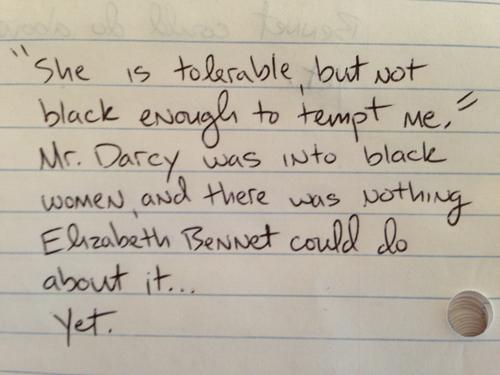 "She is tolerable, but not
black enough to tempt me."
Mr. Darcy was into black
women, and there was nothing
Elizabeth Bennet could do
about it...
Yet.